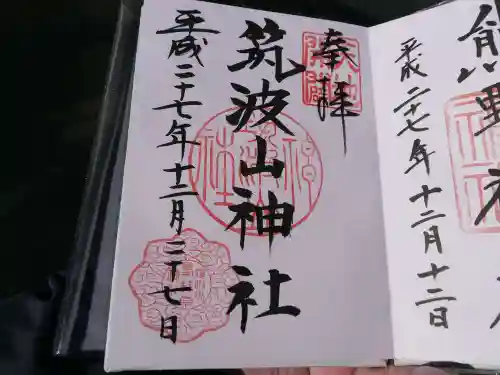 奉拝
筑波山神社
平成二十七年十二月二十七日
平成二十七年十二月十二日